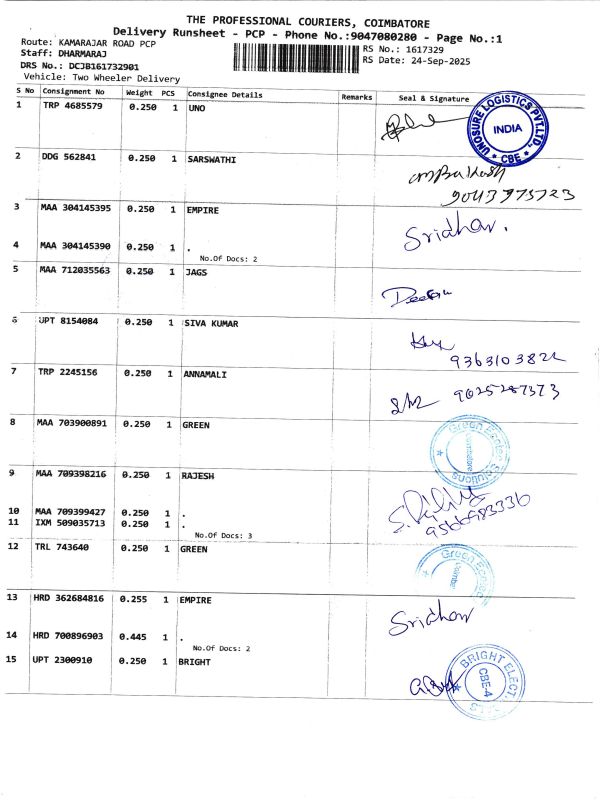 THE PROFESSIONAL COURIERS, COIMBATORE
Delivery Runsheet - PCP - Phone No.:9047080280 - Page No.:1
Route: KAMARAJAR ROAD PCP
RS No.: 1617329
Staff: DHARMARAJ
RS Date: 24-Sep-2025
DRS No.: DCJB161732901
Vehicle: Two Wheeler Delivery
S No Consignment No Weight PCS Consignee Details Remarks Seal & Signature
1 TRP 4685579 0.250 1 UNO
UNOSURE LOGISTICS PVT.LTD.,
INDIA
* CBE *
2 DDG 562841 0.250 1 SARSWATHI
9043975723
3 MAA 304145395 0.250 1 EMPIRE
Sridhar.
4 MAA 304145390 0.250 1 .
No.Of Docs: 2
5 MAA 712035563 0.250 1 JAGS
6 UPT 8154084 0.250 1 SIVA KUMAR
7 TRP 2245156 0.250 1 ANNAMALI
8 MAA 703900891 0.250 1 GREEN
Solutions
Coimbatore
9 MAA 709398216 0.250 1 RAJESH
10 MAA 709399427 0.250 1 .
11 IXM 509035713 0.250 1 .
No.Of Docs: 3
12 TRL 743640 0.250 1 GREEN
13 HRD 362684816 0.255 1 EMPIRE
Sridhar
14 HRD 700896903 0.445 1 .
No.Of Docs: 2
15 UPT 2300910 0.250 1 BRIGHT
BRIGHT
CBE-4